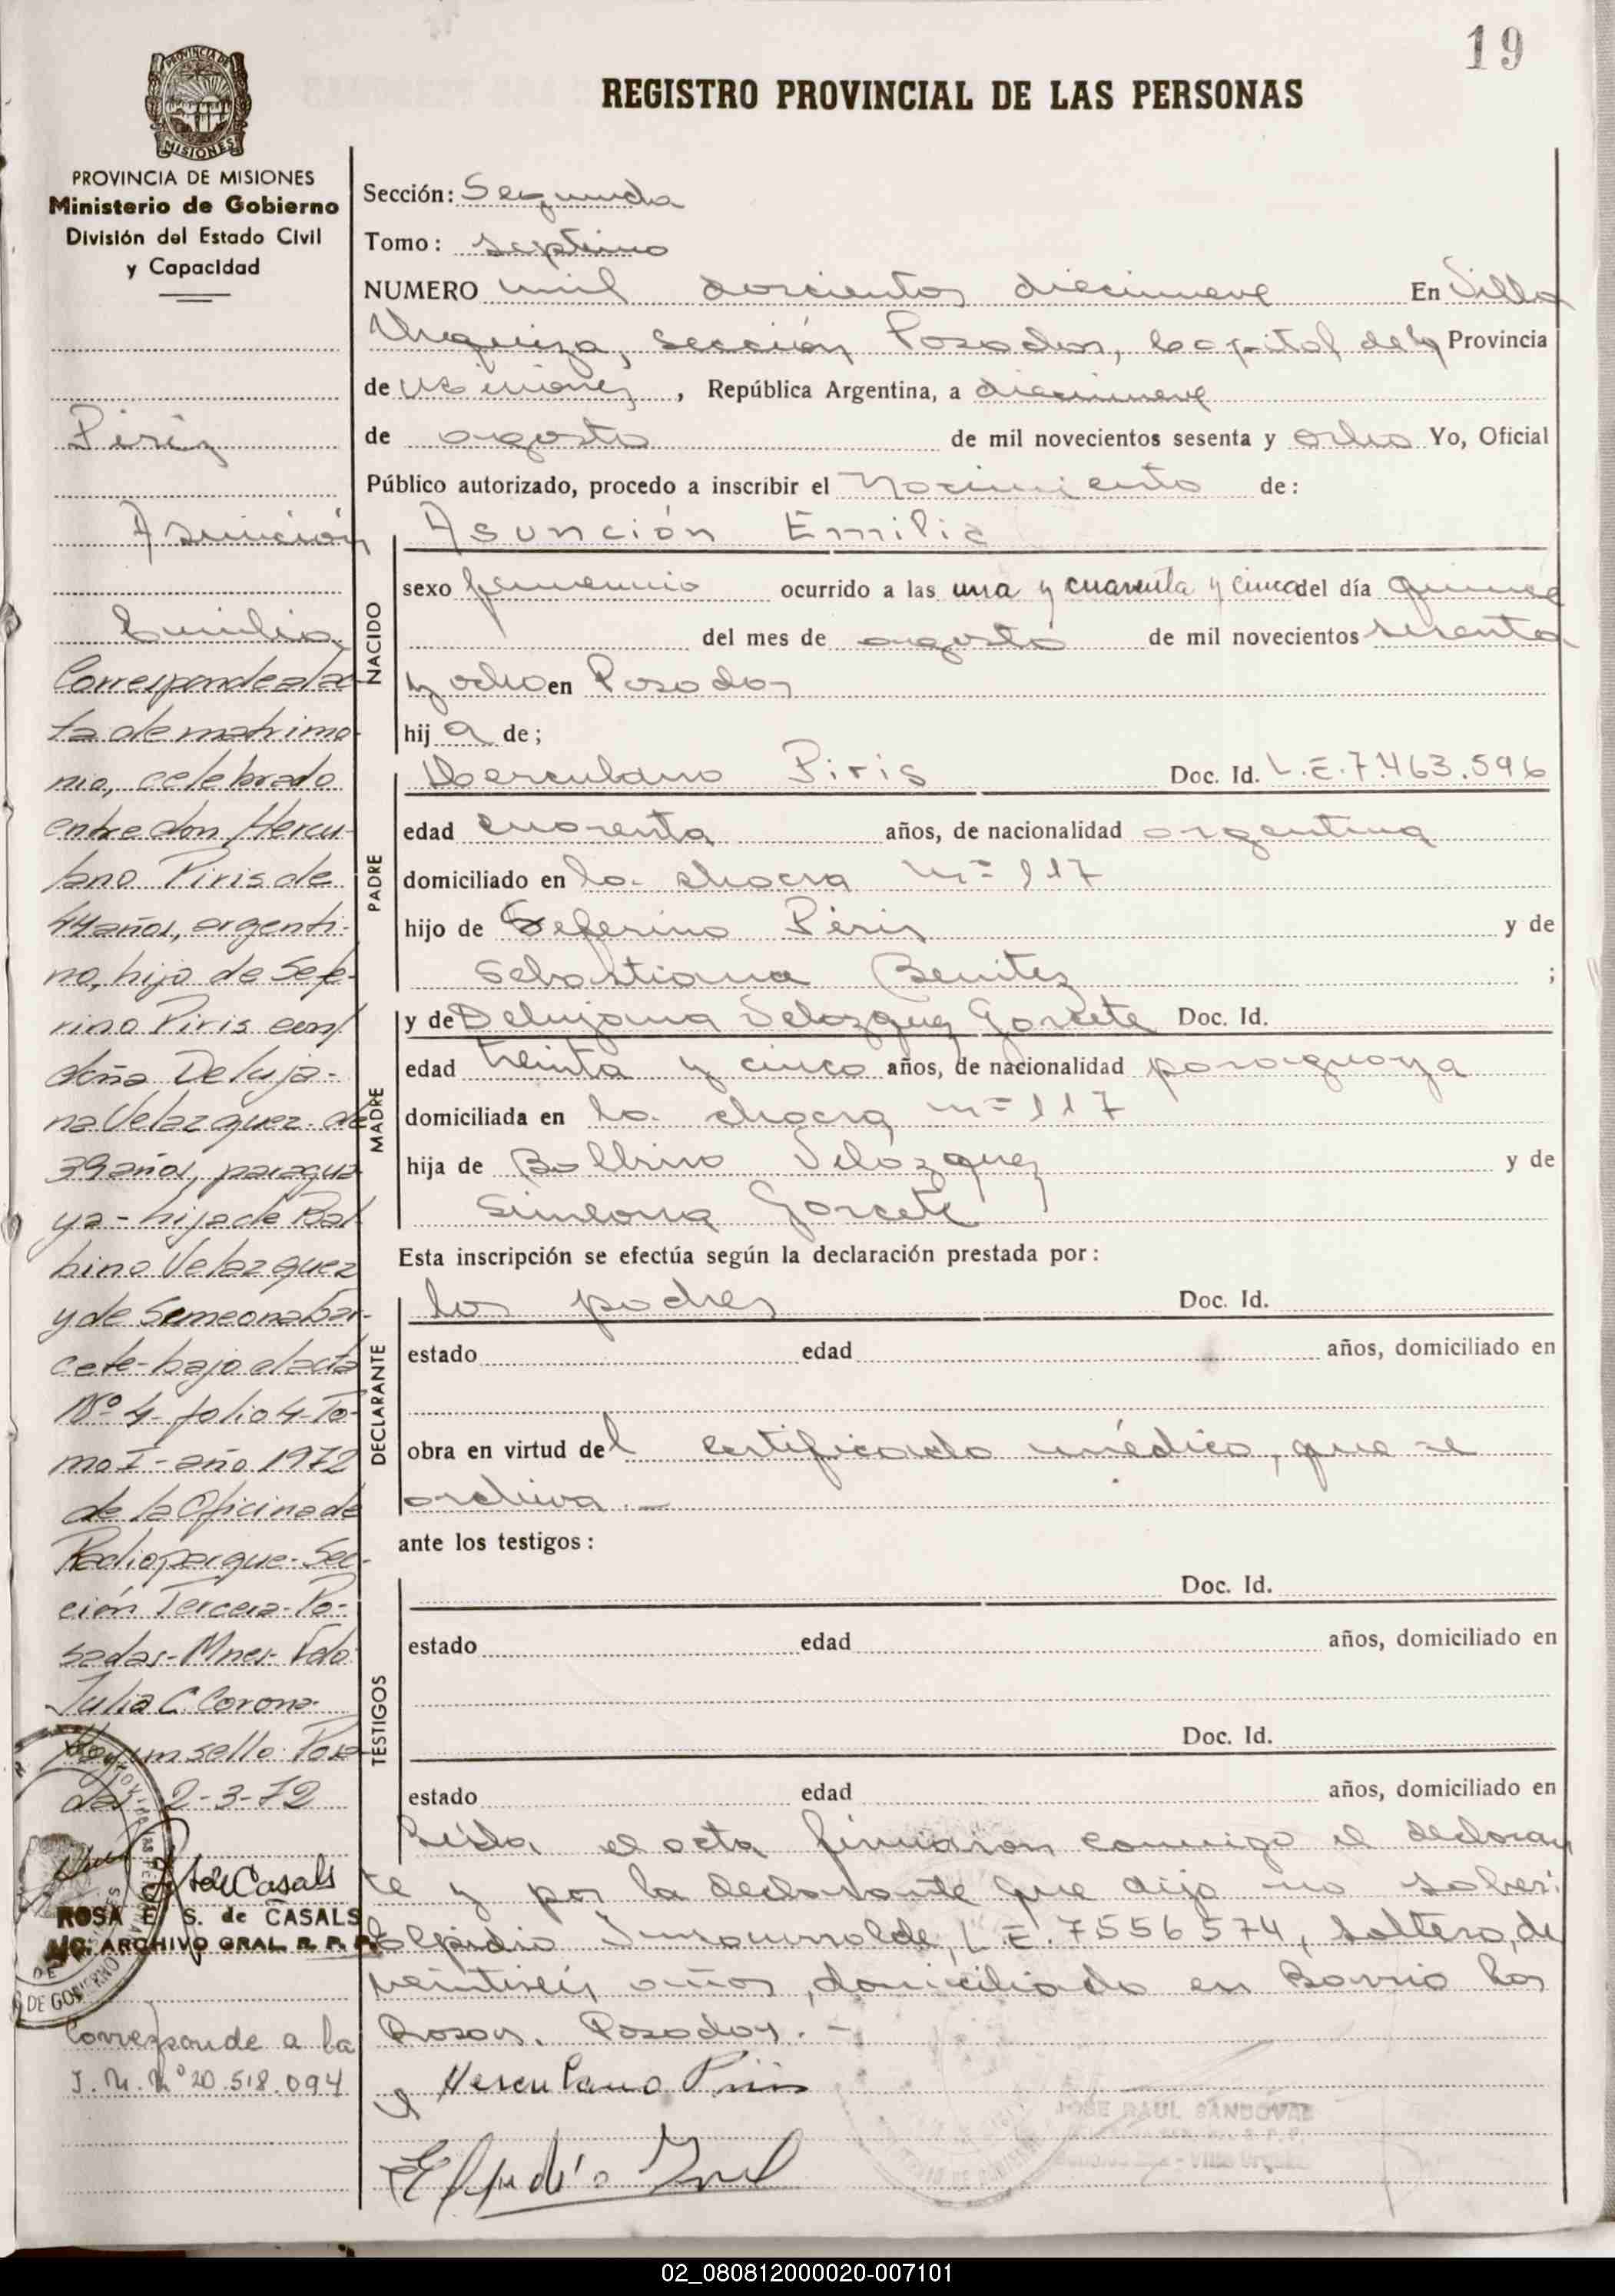 19
REGISTRO PROVINCIAL DE LAS PERSONAS
PROVINCIA DE MISIONES
MISIONES
PROVINCIA DE MISIONES
Ministerio de Gobierno
División del Estado Civil
y Capacidad
Piriz
Asunción
Emilia
Corresponde al ac
ta de matrimo
nio, celebrado
entre don Hercu-
lano Piris de
44 años, argenti-
no, hijo de Sefe-
rino Piris con
doña Deluja-
na Velazquez de
39 años, paragua
ya - hija de Bal
bino Velazquez
y de Simeona Gar-
cete - bajo el acta
Nº 4 - folio 4 - To-
mo I - año 1972
de la Oficina de
Radioparque - Sec-
ción Tercera - Po-
sadas - Mnes - Fdo
Julia C. Corona-
Hay un sello. Posa
das 2-3-72
de Casals
ROSA E. S. de CASALS
ARCHIVO GRAL R. P. P.
DE GOBIERNO
Corresponde a la
I. M. Nº 20.518.094
Sección: Segunda
Tomo: septimo
NUMERO mil doscientos diecinueve En Villa
Urquiza, sección Posadas, Capital de la Provincia
de Misiones, República Argentina, a diecinueve
de agosto de mil novecientos sesenta y ocho Yo, Oficial
Público autorizado, procedo a inscribir el Nacimiento de:
NACIDO
Asunción Emilia
sexo femenino ocurrido a las una y cuarenta y cinco del día quince
del mes de agosto de mil novecientos sesenta
y ocho en Posadas
hij a de;
PADRE
Herculano Piris Doc. Id. L.E. 7.463.596
edad cuarenta años, de nacionalidad argentina
domiciliado en la chacra nº 117
hijo de Seferino Piris y de
Sebastiana Benitez ;
MADRE
y de Delujana Velazquez Garcete Doc. Id.
edad treinta y cinco años, de nacionalidad paraguaya
domiciliada en la chacra nº 117
hija de Balbino Velazquez y de
Simeona Garcete
Esta inscripción se efectúa según la declaración prestada por:
DECLARANTE
los padres Doc. Id.
estado edad años, domiciliado en
obra en virtud del certificado médico, que se
archiva.-
ante los testigos:
TESTIGOS
Doc. Id.
estado edad años, domiciliado en
Doc. Id.
estado edad años, domiciliado en
Leída el acta firmaron conmigo el declaran
te y por la declarante que dijo no saber:
Elpidio L.E. 7556574, soltero, de
veintiseis años, domiciliado en Barrio Las
Rosas. Posadas.-
Herculano Piris
Elpidio
JOSE RAUL SANDOVAL
02_080812000020-007101